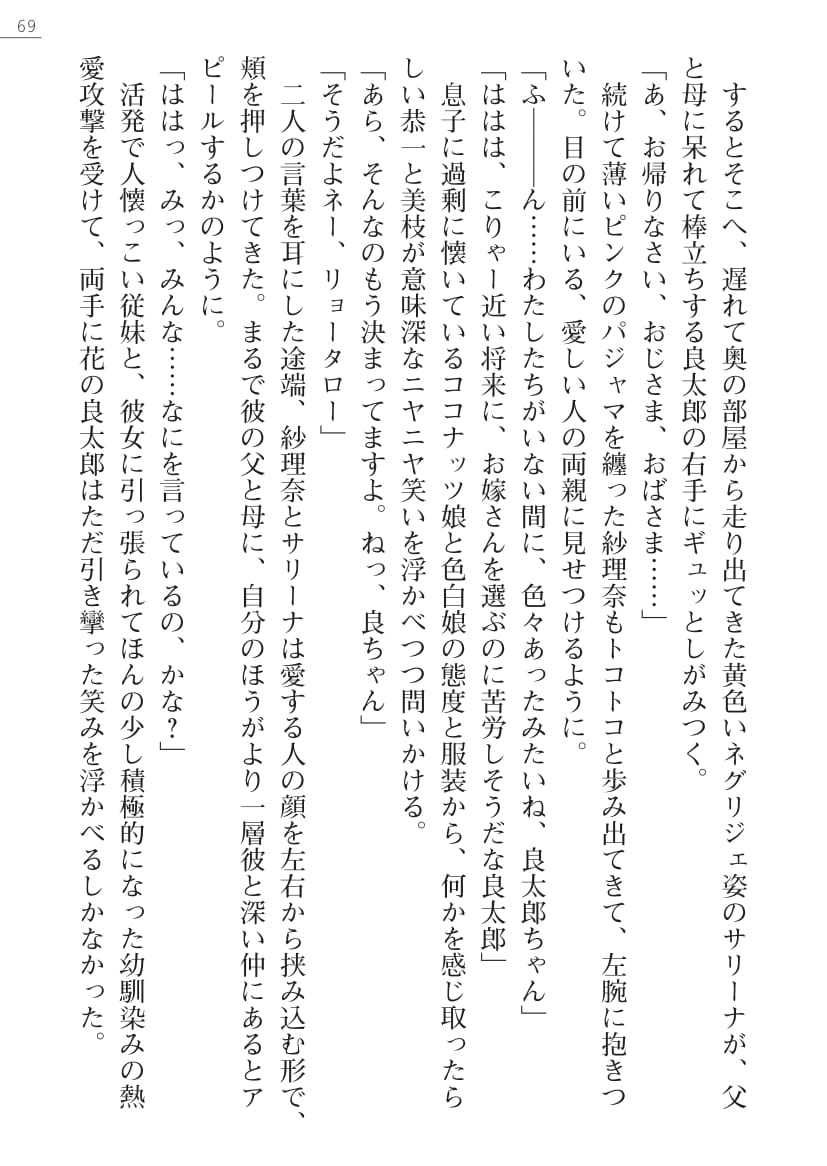 69
するとそこへ、遅れて奥の部屋から走り出てきた黄色いネグリジェ姿のサリーナが、父
と母に呆れて棒立ちする良太郎の右手にギュッとしがみつく。
「あ、お帰りなさい、おじさま、おばさま……」
続けて薄いピンクのパジャマを纏った紗理奈もトコトコと歩み出てきて、左腕に抱きつ
いた。目の前にいる、愛しい人の両親に見せつけるように。
「ふ――ん……わたしたちがいない間に、色々あったみたいね、良太郎ちゃん」
「ははは、こりゃー近い将来に、お嫁さんを選ぶのに苦労しそうだな良太郎」
息子に過剰に懐いているココナッツ娘と色白娘の態度と服装から、何かを感じ取ったら
しい恭一と美枝が意味深なニヤニヤ笑いを浮かべつつ問いかける。
「あら、そんなのもう決まってますよ。ねっ、良ちゃん」
「そうだよネー、リョータロー」
二人の言葉を耳にした途端、紗理奈とサリーナは愛する人の顔を左右から挟み込む形で、
頬を押しつけてきた。まるで彼の父と母に、自分のほうがより一層彼と深い仲にあるとア
ピールするかのように。
「ははっ、みっ、みんな……なにを言っているの、かな？」
活発で人懐っこい従妹と、彼女に引っ張られてほんの少し積極的になった幼馴染みの熱
愛攻撃を受けて、両手に花の良太郎はただ引き攣った笑みを浮かべるしかなかった。